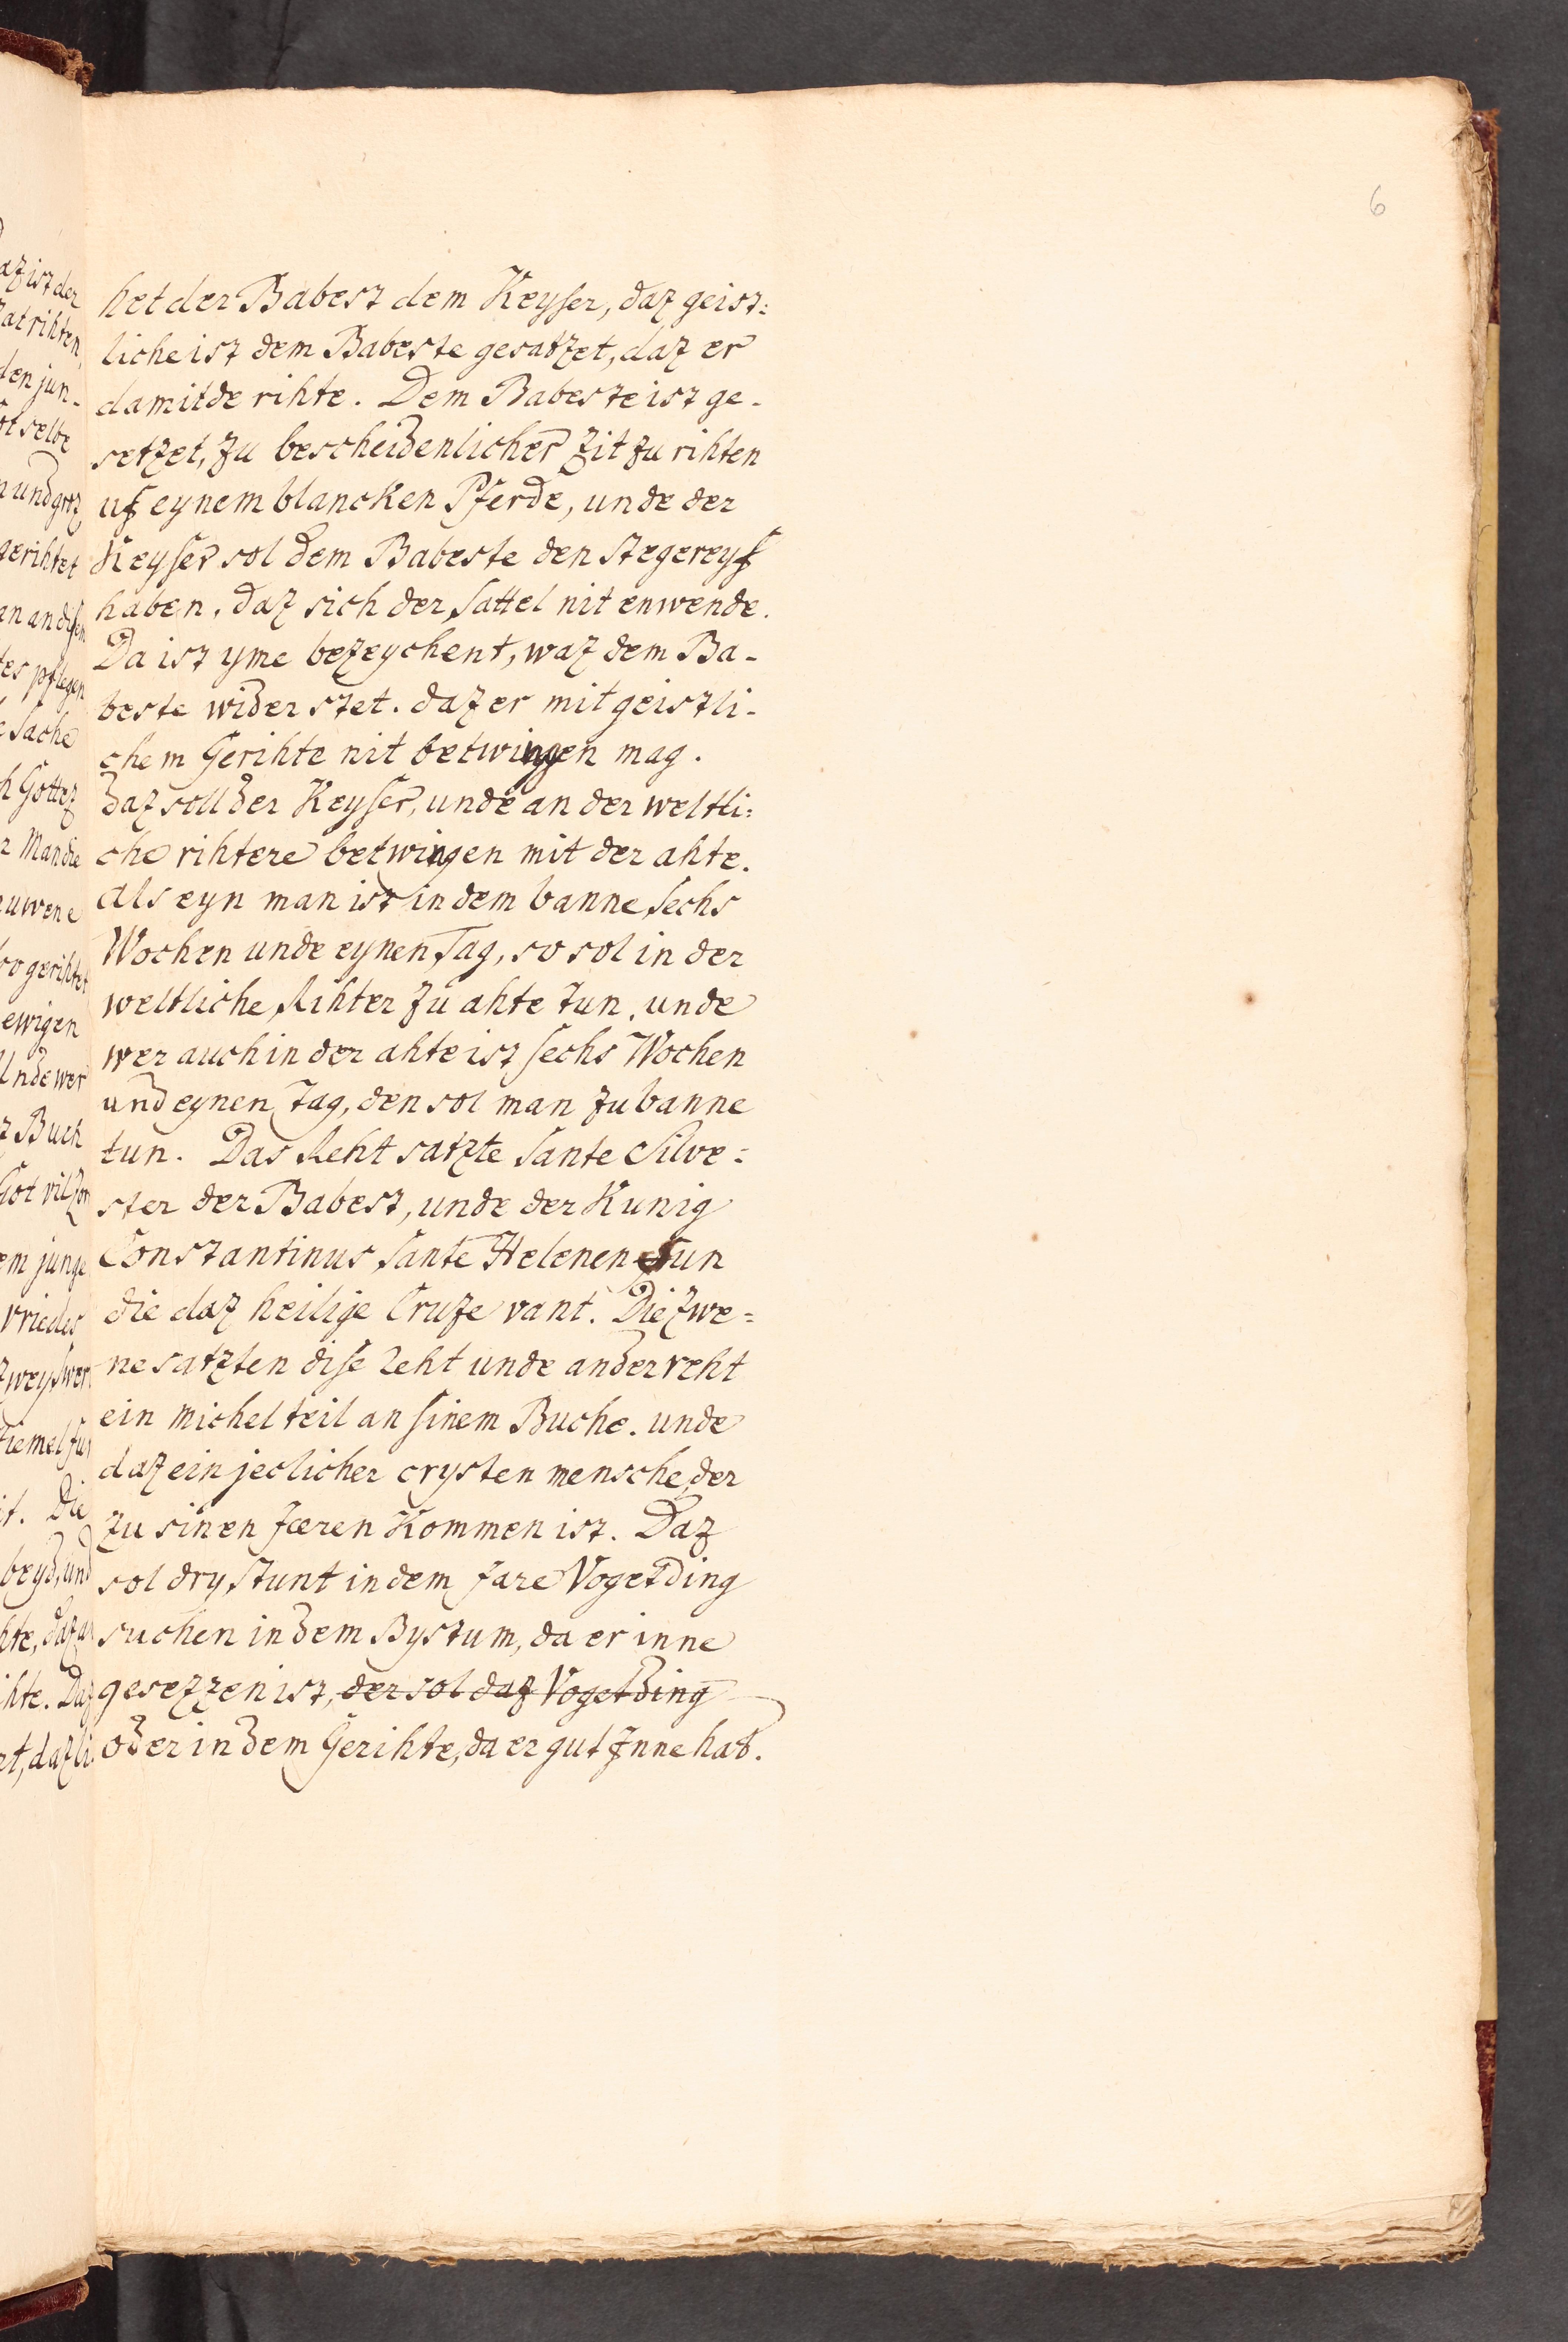 6
het der Babest dem Keyser, daz geist=
liche ist dem Babeste gesatzet, daz er
damitde rihte. Dem Babeste ist ge-
setzet, zu bescheidenlicher Zit zu rihten
uf eynem blancken Pferde, unde der
Keyser sol dem Babeste den stegereyf
haben, daz sich der Sattel nit enwende.
Da ist yme bezeychent, waz dem Ba-
beste wider stet. daz er mit geistli-
chem Gerihte nit betwingen mag.
daz soll der Keyser, unde an der weltli=
che rihtere betwingen mit der ahte.
Als eyn man ist in dem banne Sechs
Wochen unde eynen Tag, so sol in der
weltliche Rihter zu ahte tun, unde
wer auch in der ahte ist sechs Wochen
und eynen Tag, den sol man zu banne
tun. Das Reht satzte Sante Silve=
ster der Babest, unde der Kunig
Constantinus Sante Helenen Sun
die daz heilige Cruze vant. Die zwe=
ne satzten dise reht unde ander reht
ein michel teil an sinem Buche. unde
daz ein jeclicher crysten mensche, der
zu sinen Jæren Kommen ist. Daz
sol dry Stunt in dem Jare Vogetding
suchen in dem Bystum, da er inne
gesezzen ist, der sol daz Vogetding
oder in dem Gerihte, da er gut Inne hat.